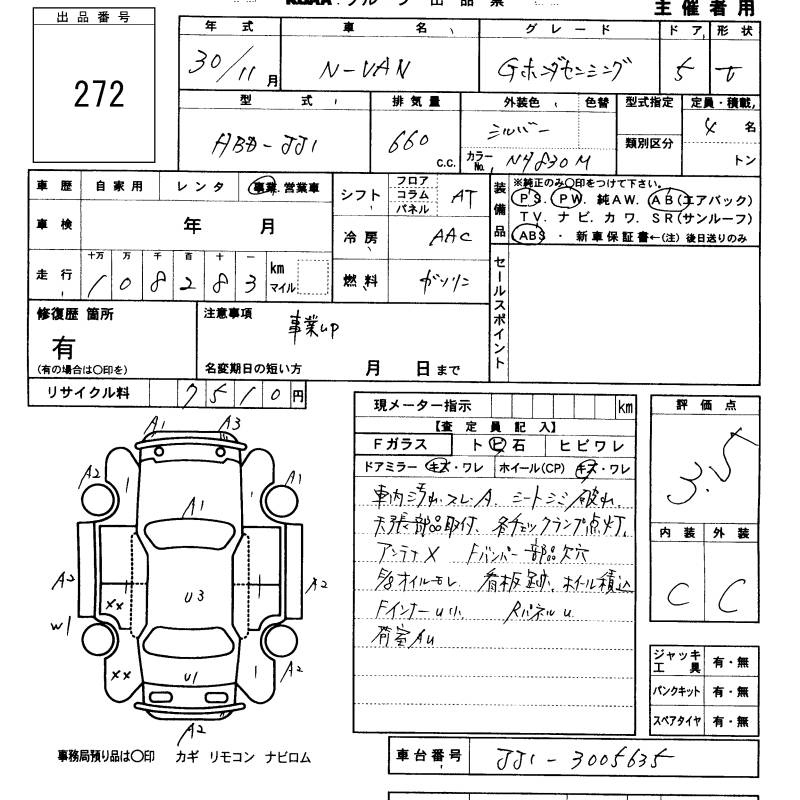 KCAA グループ 出品票
主催者用
出品番号
272
年式 車名 グレード ドア 形状
30/11月 N-VAN Gホンダセンシング 5 T
型式 排気量 外装色 色替 型式指定 定員・積載
ABD-JJ1 660 c.c. シルバー カラーNo. NH830M 類別区分 4名 トン
車歴 自家用 レンタ 事業 営業車
車検 年 月
走行 十万 万 千 百 十 一
1 0 8 2 8 3 km マイル
シフト フロア コラム パネル AT
冷房 AAC
燃料 ガソリン
装備品 ※純正のみ〇印をつけて下さい。
PS. PW. 純AW. AB(エアバック)
TV. ナビ. カワ. SR(サンルーフ)
ABS ・ 新車保証書←(注) 後日送りのみ
セールスポイント
修復歴 箇所
有
(有の場合は〇印を)
注意事項
事業up
名変期日の短い方 月 日まで
リサイクル料 7 5 1 0 円
現メーター指示 km
【査定員記入】
Fガラス トビ石 ヒビワレ
ドアミラー キズ・ワレ ホイール(CP) キズ・ワレ
車内汚れ スレ A. シートシミ 破れ.
天張部品取付. 各チェックランプ点灯.
アンテナX Fバンパー部品欠穴
E/gオイルモレ. 看板跡. ホイール積込
Fインナーu小 Rパネルu
荷室Au
評価点
3.5
内装 外装
C C
ジャッキ工具 有・無
パンクキット 有・無
スペアタイヤ 有・無
A1 A3
A2 A1
A1
A2 U3 A2
XX
W1
XX U1 A2
A2
事務局預り品は〇印 カギ リモコン ナビロム
車台番号 JJ1-3005635